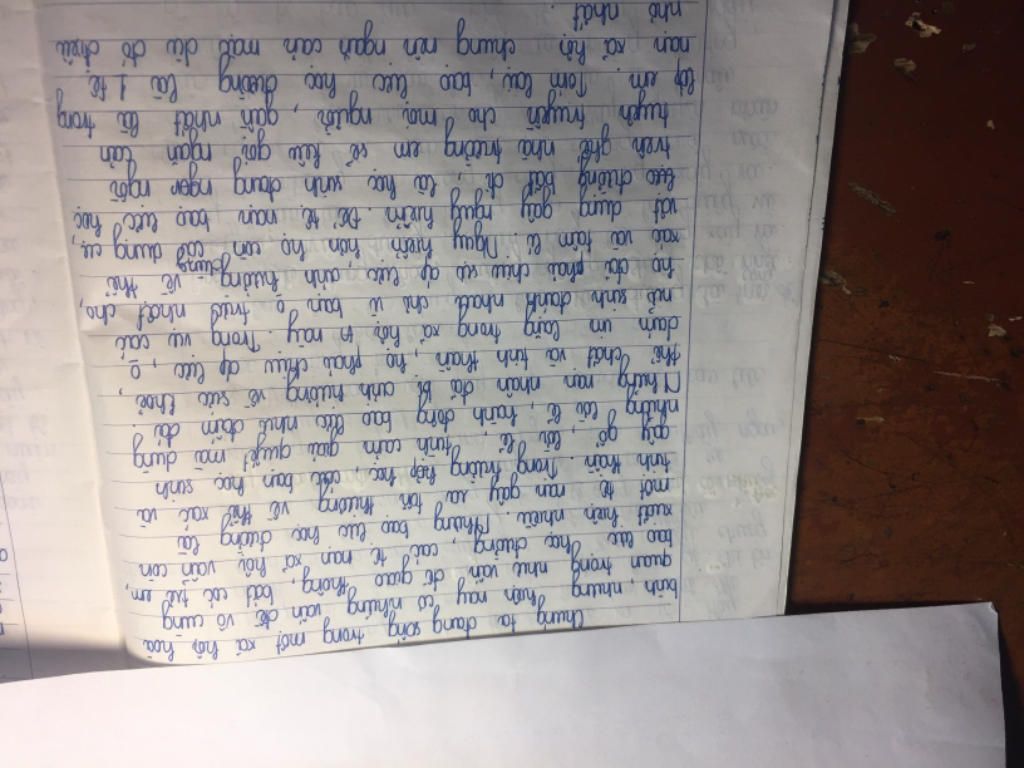 Chúng ta đang sống trong một xã hội hoà
bình nhưng hiện nay có những vấn đề vô cùng
quan trọng như vấn đề giao thông, bắt cóc trẻ em,
bạo lực học đường, các tệ nạn xã hội vẫn còn
xuất hiện nhiều. Nhưng bạo lực học đường là
một tệ nạn gây ra tổn thương về thể xác và
tinh thần. Trong trường hợp học, các bạn học sinh
gây gỗ, cãi lẽ tính cảm giải quyết mà dùng
những lời lẽ, hành động bạo lực như đấm đá.
Những nạn nhân đã bị ảnh hưởng về sức khoẻ,
thể chất và tinh thần, họ phải chịu áp lực,
dám im lặng trong xã hội này. Trong vụ các
nữ sinh đánh nhau chỉ vì bạn ở trước nhất, cho
họ đã phải chịu áp lực ảnh hưởng đúng về thể
xác và tâm lí. Nguy hiểm hơn họ còn dụng cụ,
vật dụng gây nguy hiểm. Để tệ nạn bạo lực học
lực đường bất đi, là học sinh đang ngồi
trên ghế nhà trường em sẽ kêu gọi ngăn cản
tuyên truyền cho mọi người, gần nhất là trong
lớp em. Tóm lại, bạo lực học đường là 1 tệ
nạn xã hội chung nên ngăn cản mặc dù đó điều
nhỏ nhất.